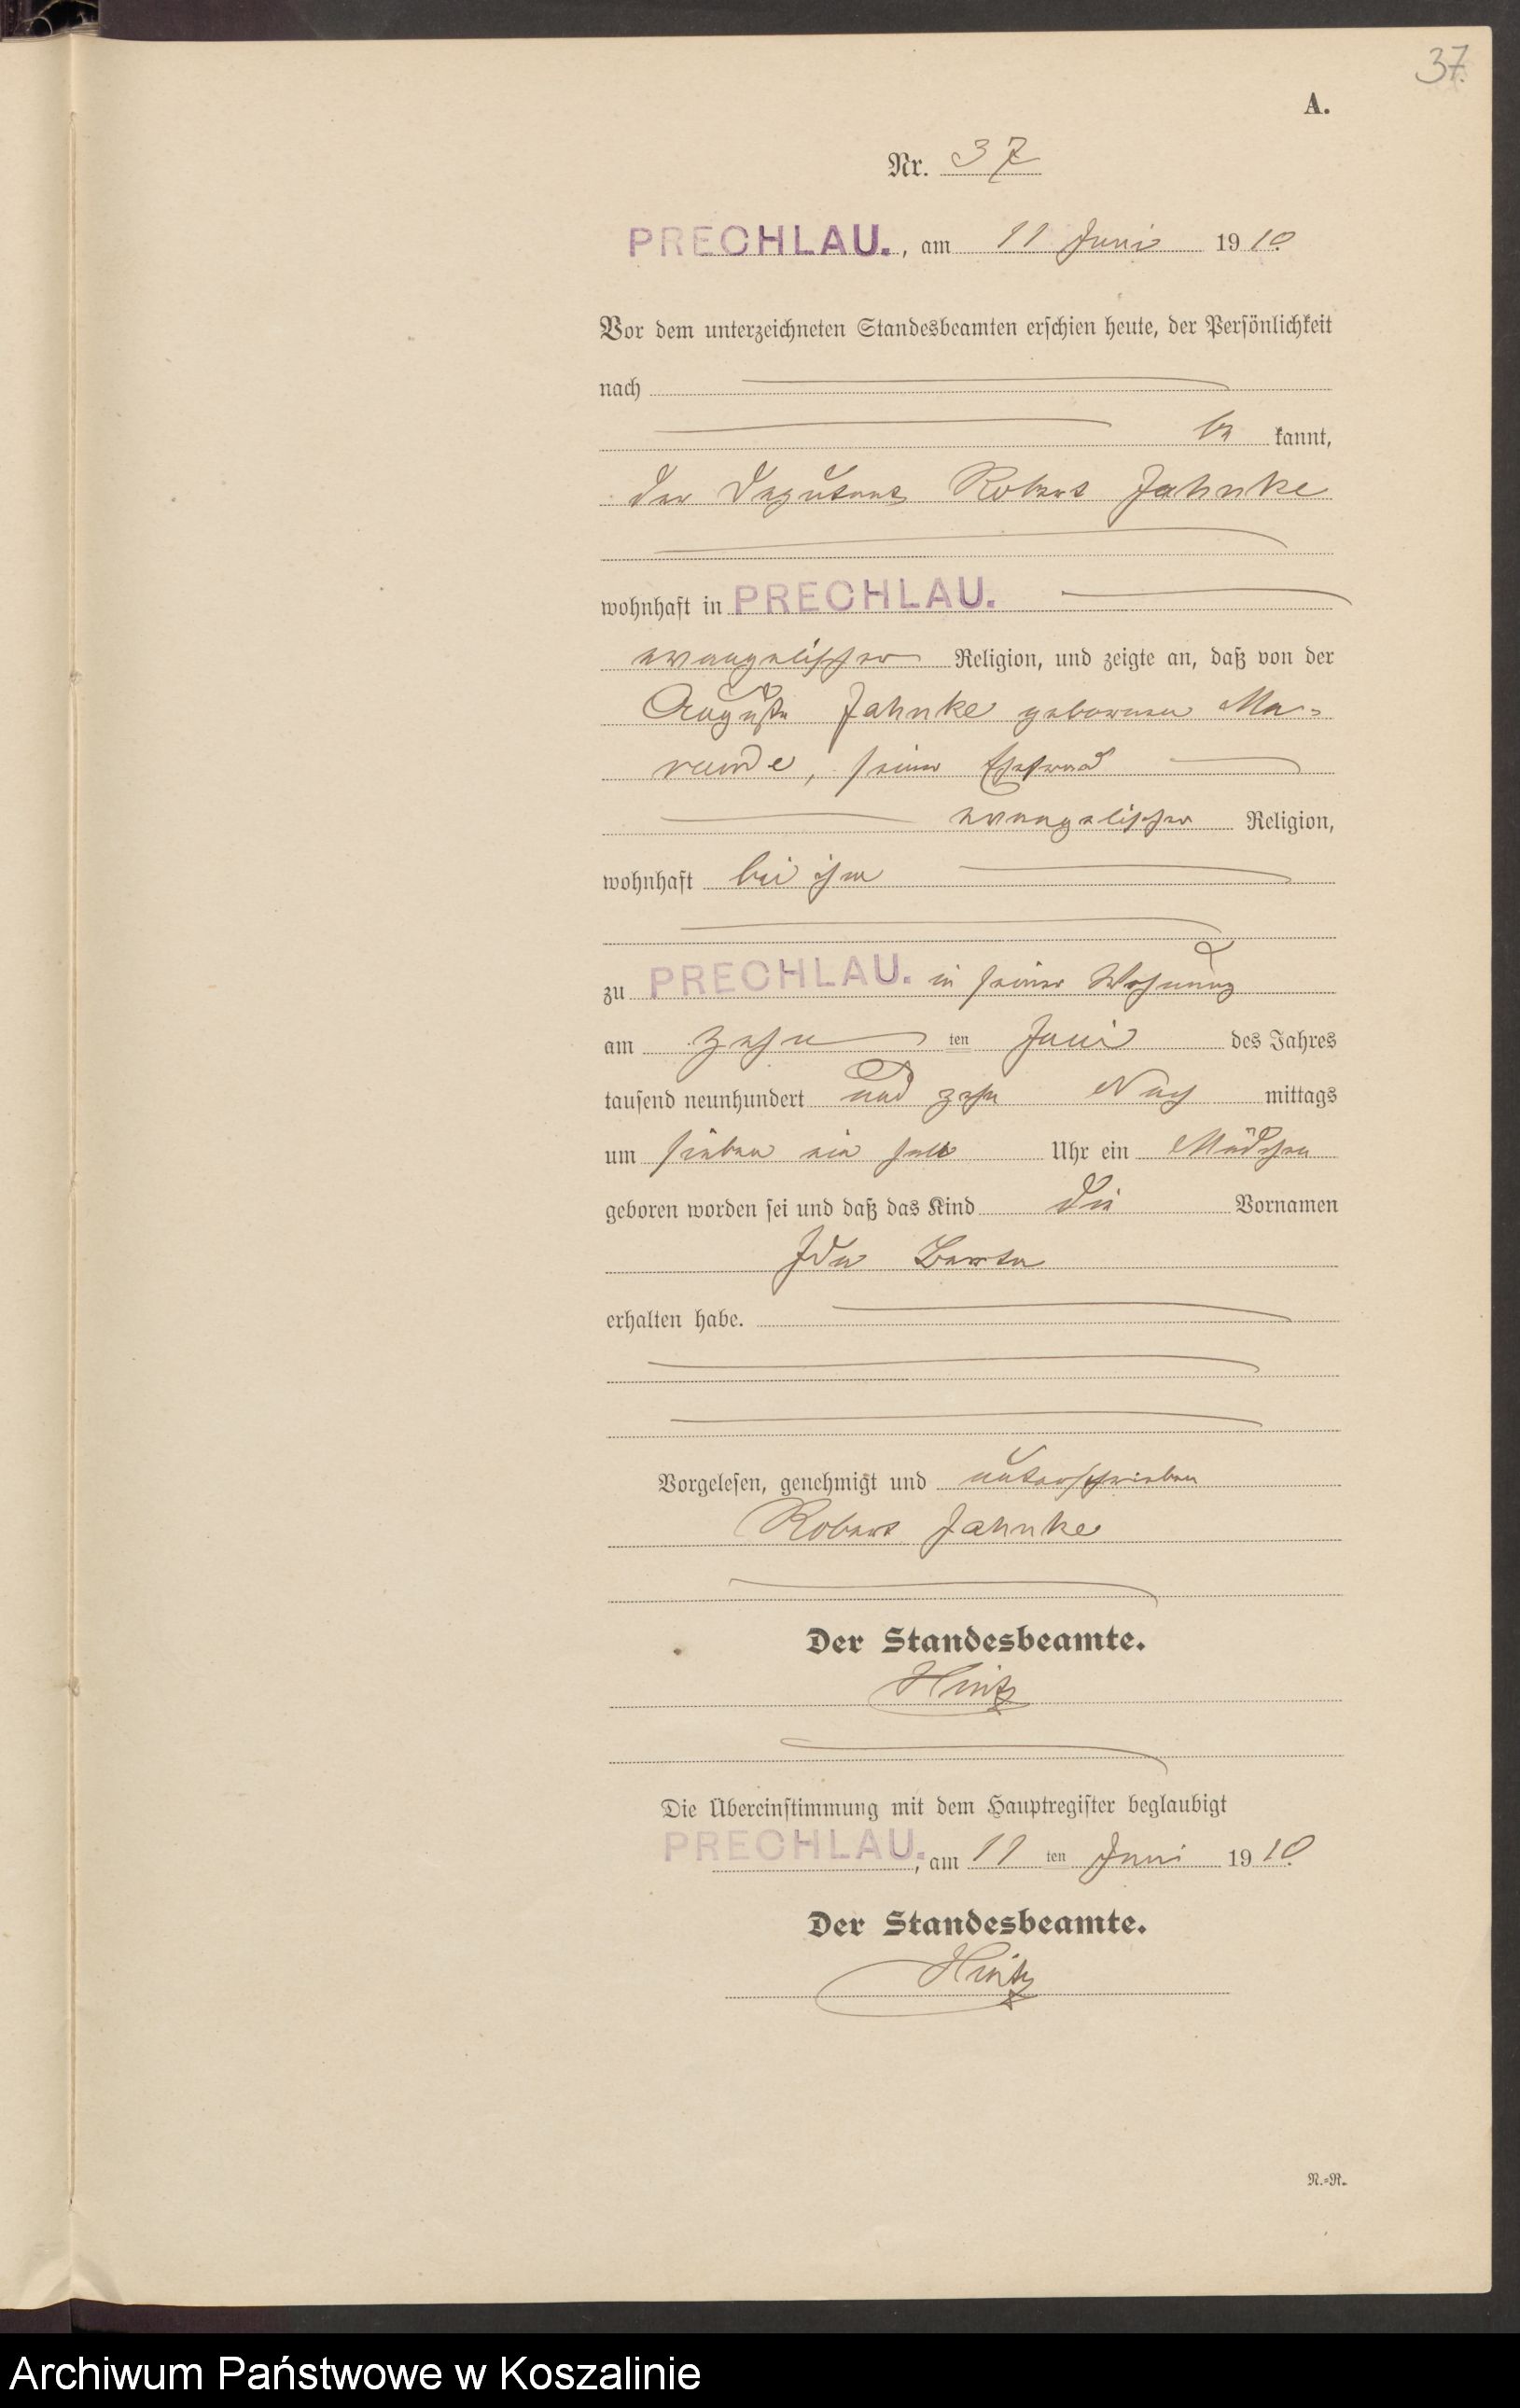 37.
A.
Nr. 37
PRECHLAU., am 11 Juni 1910.
Vor dem unterzeichneten Standesbeamten erschien heute, der Persönlichkeit
nach
be kannt,
der Deputant Robert Jahnke
wohnhaft in PRECHLAU.
evangelischer Religion, und zeigte an, daß von der
Auguste Jahnke geborenen Ma-
runde, seiner Ehefrau
evangelischer Religion,
wohnhaft bei ihm
zu PRECHLAU. in seiner Wohnung
am zehn ten Juni des Jahres
tausend neunhundert und zehn Nach mittags
um sieben ein halb Uhr ein Mädchen
geboren worden sei und daß das Kind die Vornamen
Ida Berta
erhalten habe.
Vorgelesen, genehmigt und unterschrieben
Robert Jahnke
Der Standesbeamte.
Hintz
Die Übereinstimmung mit dem Hauptregister beglaubigt
PRECHLAU., am 11 ten Juni 1910.
Der Standesbeamte.
Hintz
N.=R.
Archiwum Państwowe w Koszalinie